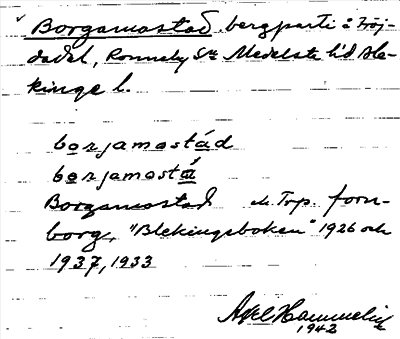 Borgamostad, bergparti å Fröj-
dadal, Ronneby Sn Medelsta hd Ble-
kinge l.
borjamostád
borjamostá
Borgamostad forn-
borg, "Blekingeboken" 1926 och
1937, 1933
Axel Hammelin
1942